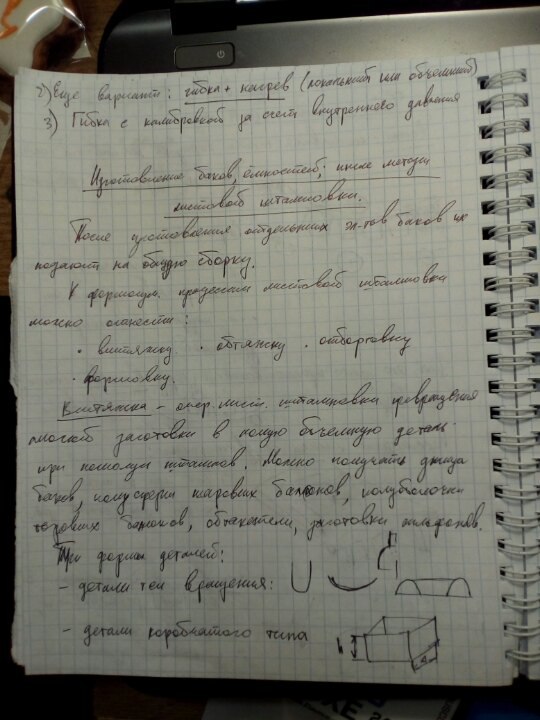 2) Еще вариант: гибка + нагрев (локальный или объемный)
3) Гибка с калибровкой за счет внутреннего давления
Изготовление баков, ёмкостей; иные методы
листовой штамповки.
После изготовления отдельных эл-тов баков их
подают на общую сборку.
К формоизм. процессам листовой штамповки
можно отнести:
· вытяжку · обтяжку · отбортовку
· формовку.
Вытяжка - опер. лист. штамповки превращения
плоской заготовки в полую объемную деталь
при помощи штампов. Можно получать днища
баков, полусферы шаровых баллонов, полуоболочки
торовых баллонов, обтекатели, заготовки сильфонов.
Три формы деталей:
- детали тел вращения:
- детали коробчатого типа
h